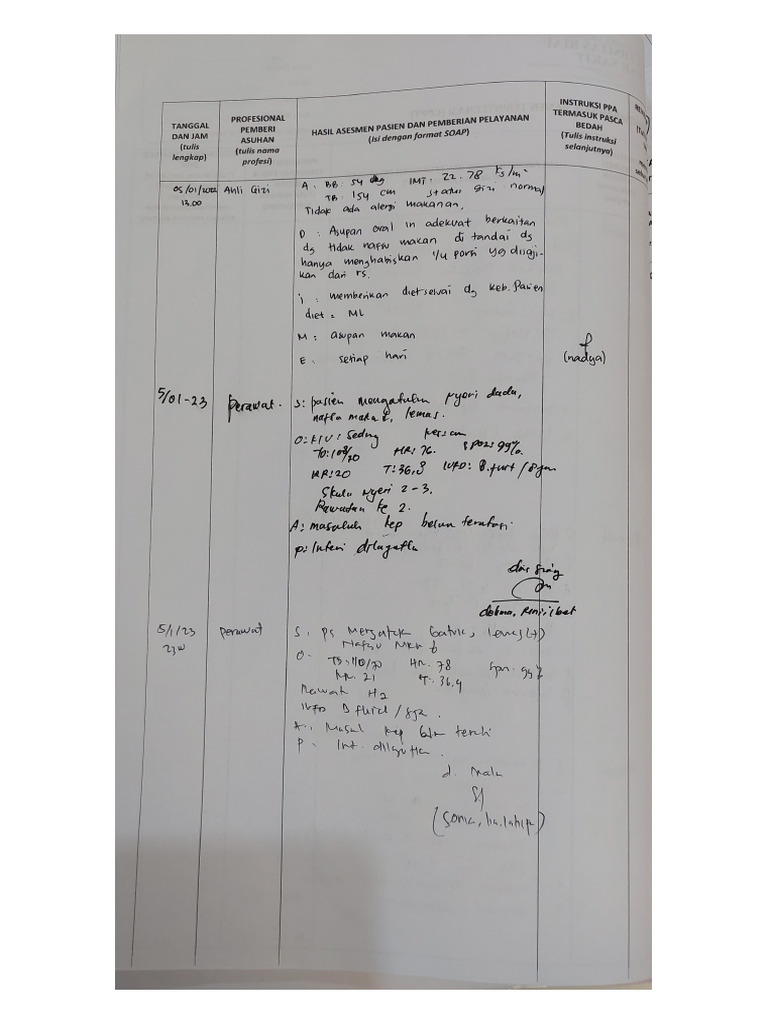 TANGGAL DAN JAM (tulis lengkap)
PROFESIONAL PEMBERI ASUHAN (tulis nama profesi)
HASIL ASESMEN PASIEN DAN PEMBERIAN PELAYANAN
(isi dengan format SOAP)
INSTRUKSI PPA TERMASUK PASCA BEDAH (Tulis instruksi selanjutnya)
05/01/2022
13.00
Ahli Gizi
A : BB : 54 kg IMT : 22.78 kg/m²
TB : 154 cm status gizi normal
Tidak ada alergi makanan.
D : Asupan oral in adekuat berkaitan
dg tidak nafsu makan di tandai dg
hanya menghabiskan 1/4 porsi yg disaji-
kan dari rs.
i : memberikan diet sesuai dg keb. Pasien
diet = ML
M : asupan makan
E : setiap hari
(nadya)
5/01-23
perawat.
S: pasien mengatakan nyeri dada,
nafsu makan ↓, lemas.
O: KU : Sedang
TD: 108/70 HR: 76. SPO2: 99%.
RR: 20 T: 36,3 IVFD: B.
Skala nyeri 2-3.
Rawatan ke 2.
A: masalah kep belum teratasi
p: Interv dilanjutkan
5/1/23
perawat
S. ps Mengatakan batuk, lemas (+)
Nafsu Mkn ↓
O.
TD: 110/70 HR. 78 99%
RR. 21 T. 36.4
Rawat H2
IVFD B fluid /
A. Masal kep blm teratasi
P. Int. dilanjutkan.